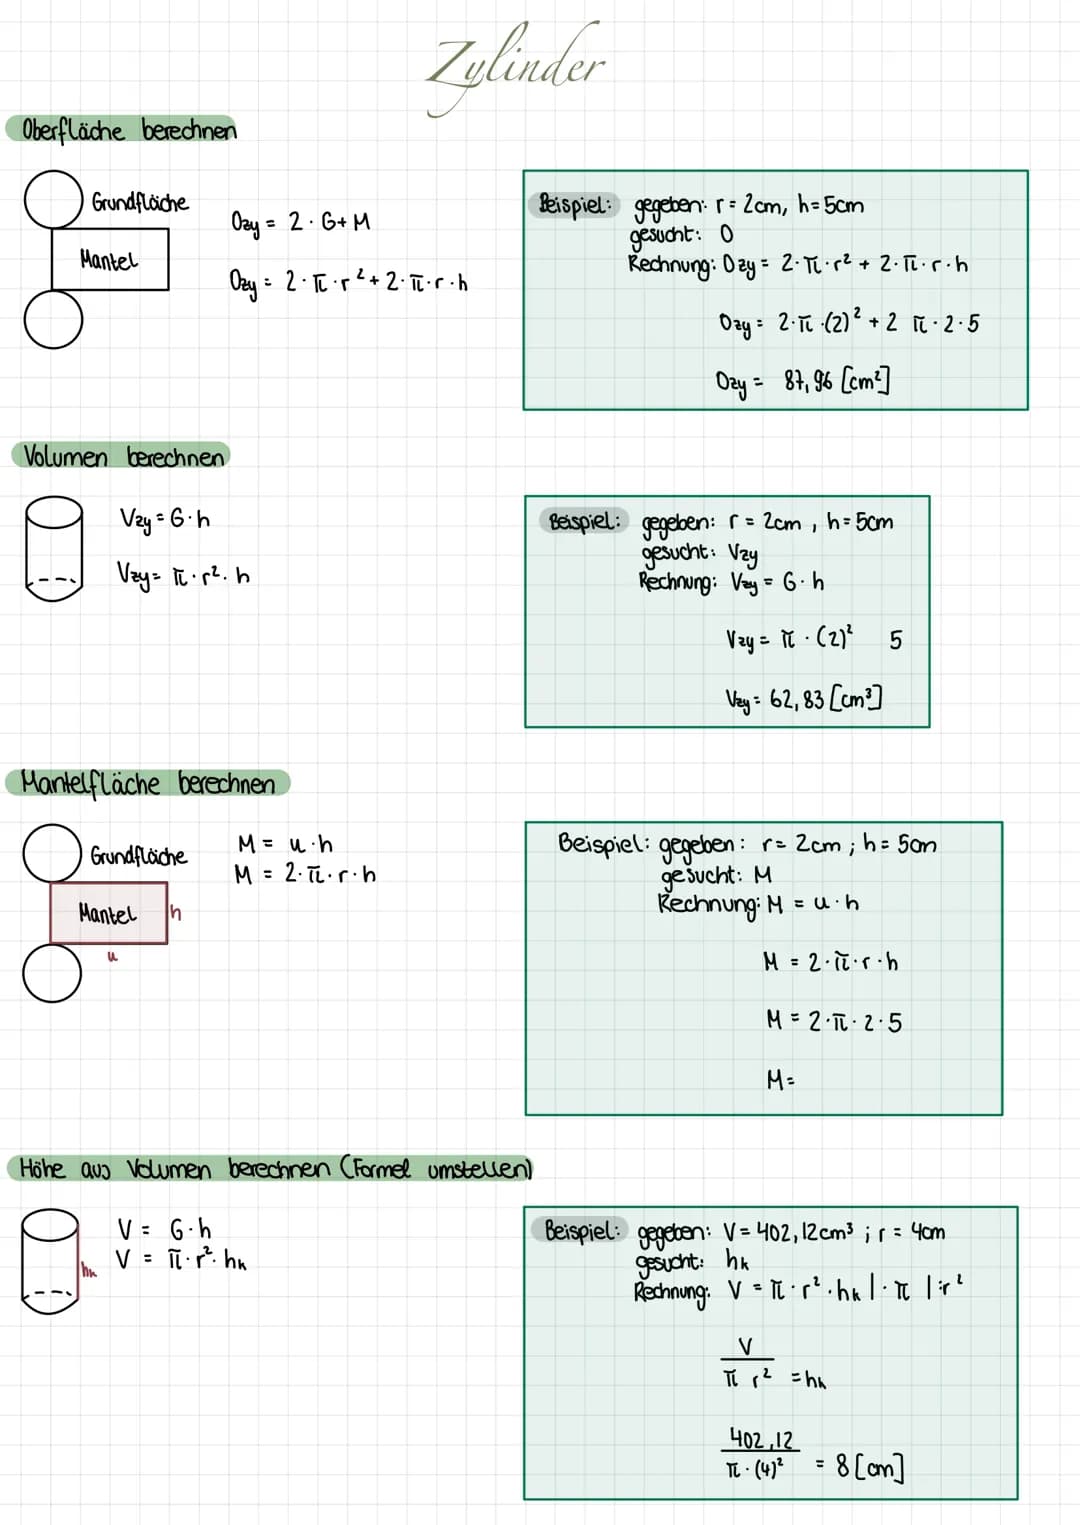 Zylinder
Oberfläche berechnen
Grundfläche
Mantel
Ozy = 2 · G + M
Ozy = 2 · π · r² + 2 · π · r · h
Beispiel: gegeben: r = 2cm, h = 5cm
gesucht: O
Rechnung: Ozy = 2 · π · r² + 2 · π · r · h
Ozy = 2 · π · (2)² + 2 π · 2 · 5
Ozy = 87,96 [cm²]
Volumen berechnen
Vzy = G · h
Vzy = π · r² · h
Beispiel: gegeben: r = 2cm, h = 5cm
gesucht: Vzy
Rechnung: Vzy = G · h
Vzy = π · (2)² 5
Vzy = 62,83 [cm³]
Mantelfläche berechnen
Grundfläche
Mantel h
u
M = u · h
M = 2 · π · r · h
Beispiel: gegeben: r = 2cm ; h = 5cm
gesucht: M
Rechnung: M = u · h
M = 2 · π · r · h
M = 2 · π · 2 · 5
M =
Höhe aus Volumen berechnen (Formel umstellen)
hk
V = G · h
V = π · r² · hk
Beispiel: gegeben: V = 402,12cm³ ; r = 4cm
gesucht: hk
Rechnung: V = π · r² · hk | · π | : r²
V
π r² = hk
402,12
π · (4)² = 8 [cm]